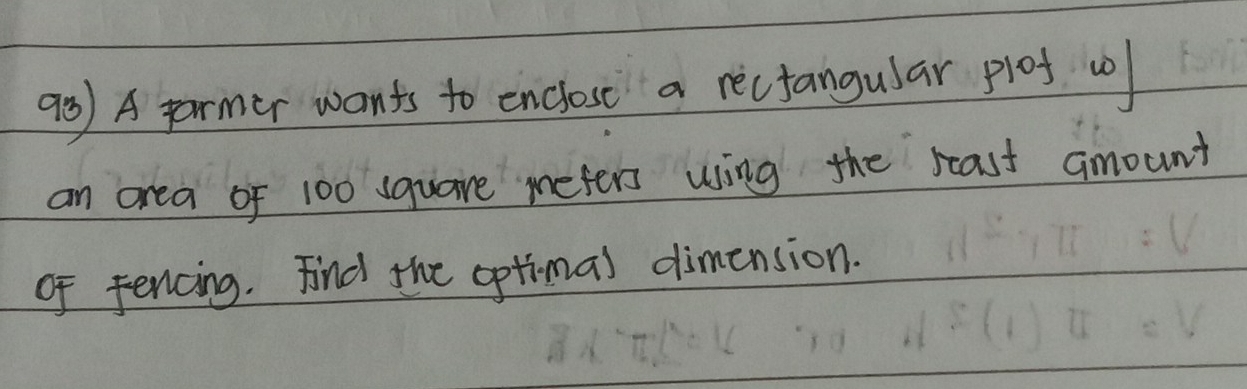 93) A farmer wants to enclose a rectangular plot w/
an area of 100 square meters using the least amount
of fencing. Find the optimal dimension.